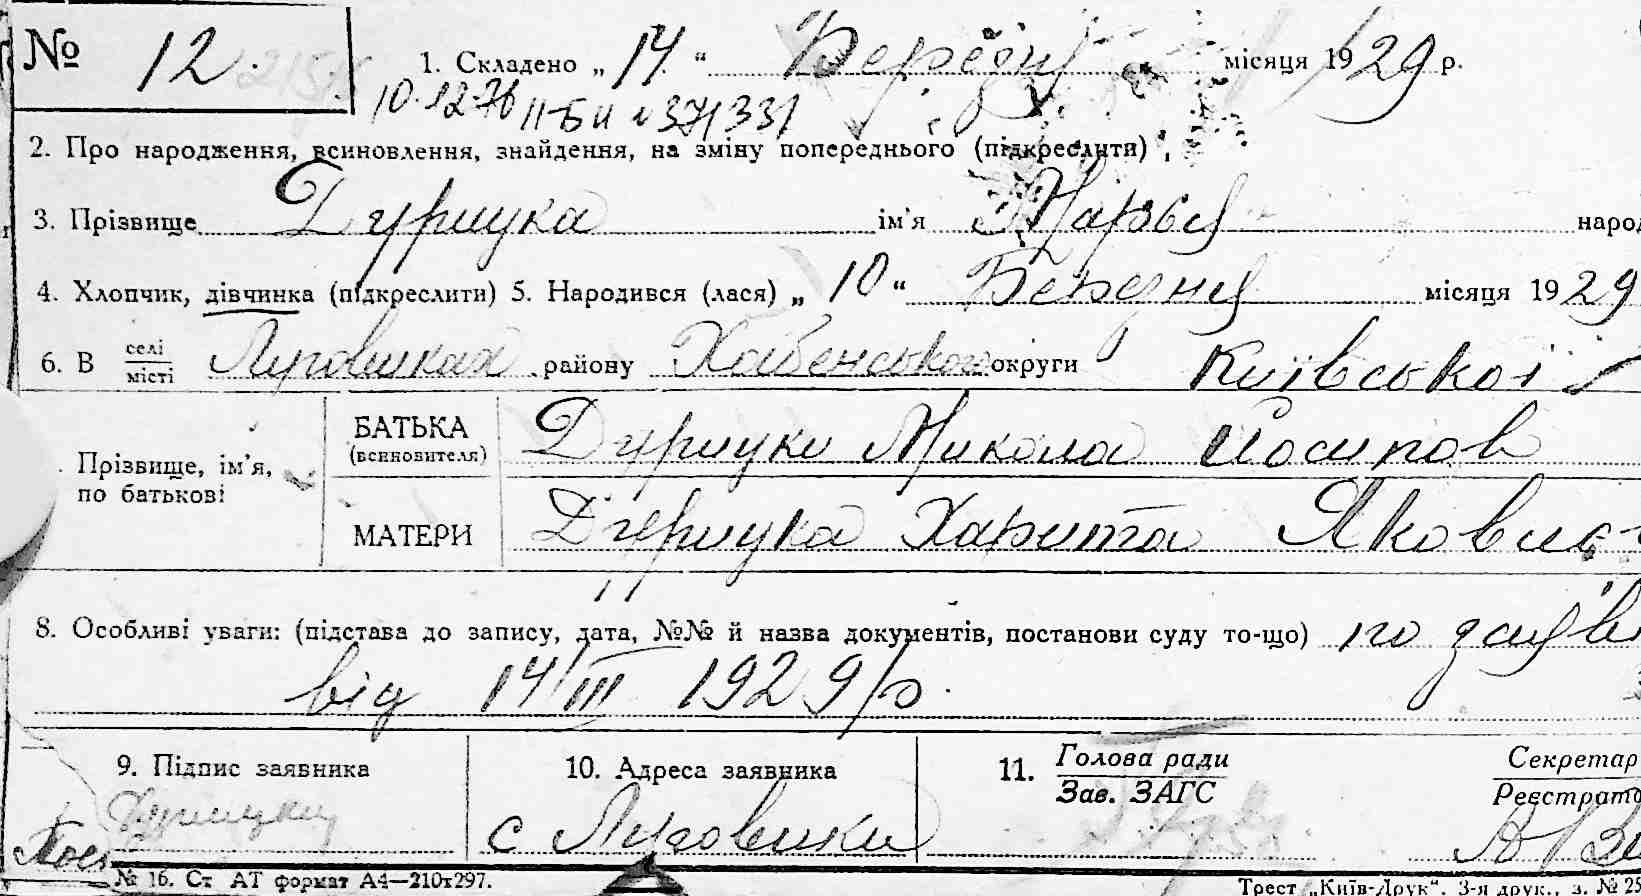 № 12.
1. Складено „ 14 “ Березня місяця 1929 р.
10.12.76 II-БК № 371331
2. Про народження, всиновлення, знайдення, на зміну попереднього (підкреслити)
3. Прізвище Дуришка ім’я Марья народ
4. Хлопчик, дівчинка (підкреслити) 5. Народився (лася) „ 10 “ Березня місяця 1929
6. В селі/місті Луговиках району Хабенського округи Київської
Прізвище, ім’я, по батькові
БАТЬКА (всиновителя)
Микола Иосипов
МАТЕРИ
Харита Яковлє
8. Особливі уваги: (підстава до запису, дата, №№ й назва документів, постанови суду то-що) по заяві
від 14/III 1929 р.
9. Підпис заявника
10. Адреса заявника
с Луговики
11. Голова ради
Зав. ЗАГС
Секретар
Реєстрато
№ 16. Ст АТ формат А4—210х297.
Трест „Київ-Друк“. 3-я друк., з. № 25